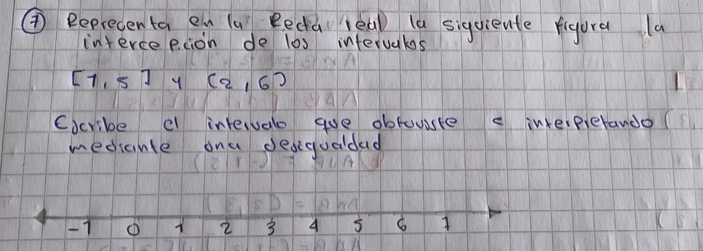 7 Reprecenta en la Recta real la siguiente figura la
intercepción de los intervalos
[1, 5] y (2, 6)
Escribe el intervalo que obtuviste e interpretando
mediante una desigualdad
-1 0 1 2 3 4 5 6 7